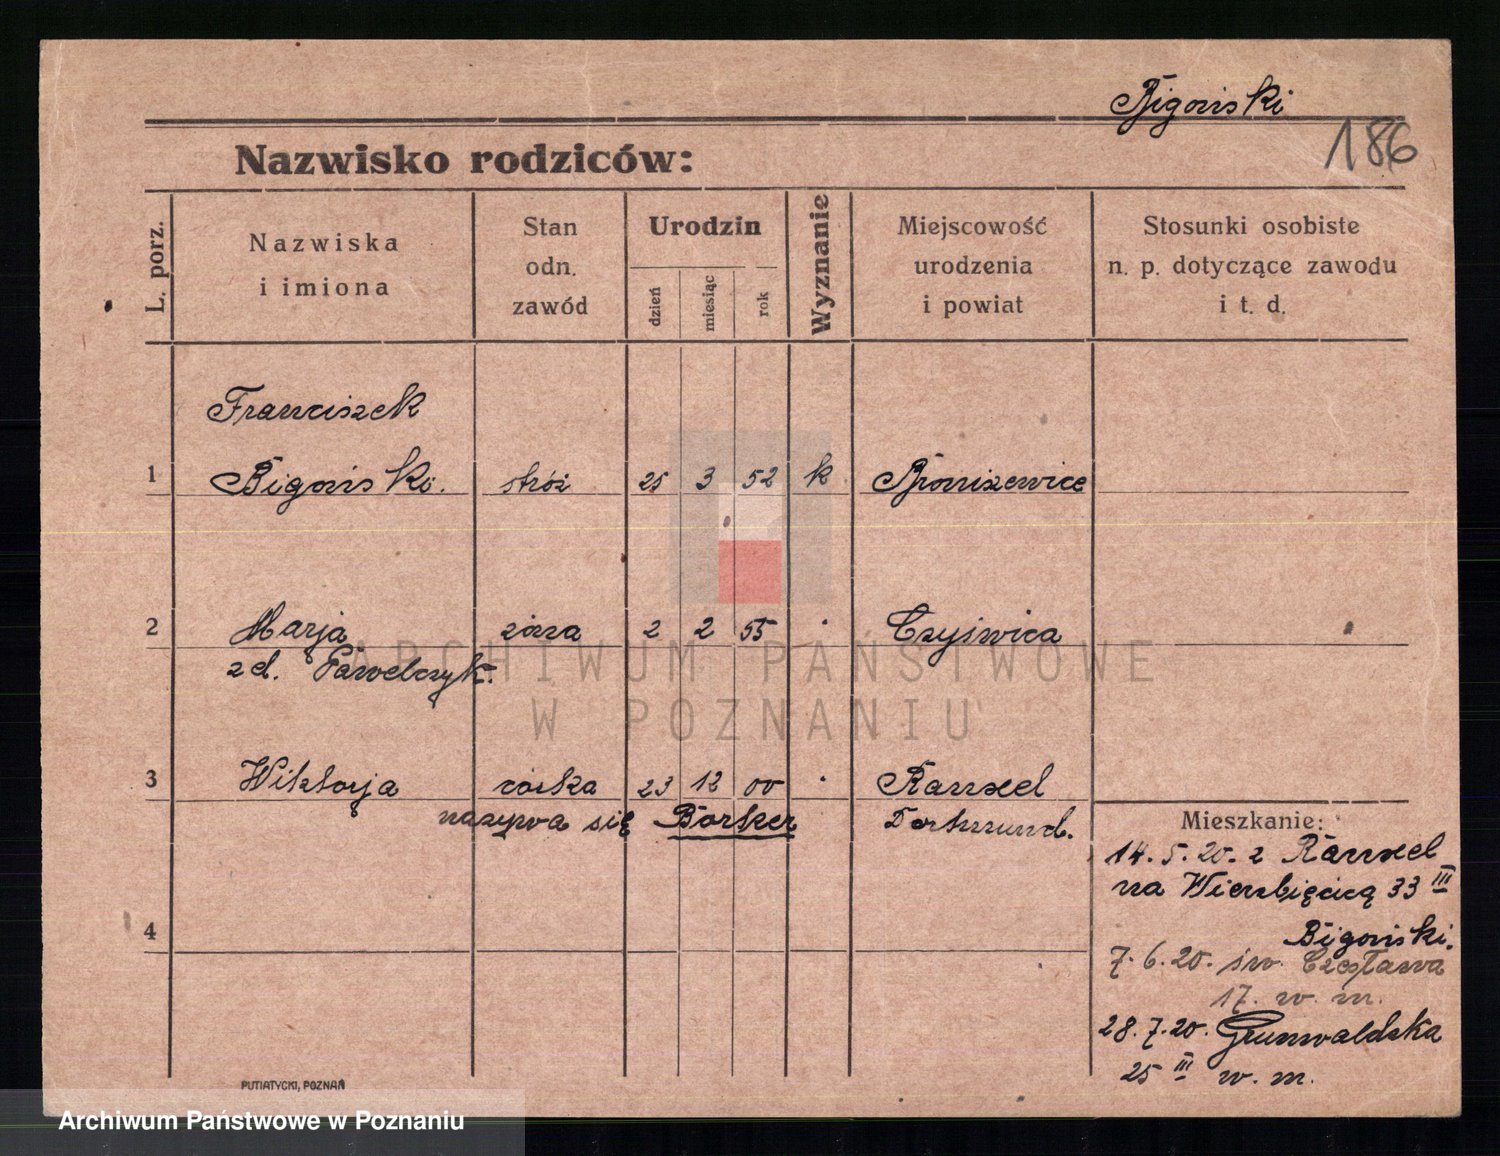 Bigoński
186
Nazwisko rodziców:
L. porz.
Nazwiska
i imiona
Stan
odn.
zawód
Urodzin
dzień
miesiąc
rok
Wyznanie
Miejscowość
urodzenia
i powiat
Stosunki osobiste
n. p. dotyczące zawodu
i t. d.
Franciszek
1 Bigoński. stróż 25 3 52 k Broniszewice
2 Marja żona 2 2 55 "
zd. Pawelczyk.
3 Wiktorja córka 23 12 00 " Rauxel
nazywa się Borker Dortmund.
4
Mieszkanie:
14. 5. 20. z Rauxel
na Wierzbięcicą 33 III
Bigoński.
7. 6. 20. św. Czesława
17. w. m.
28. 7. 20. Grunwaldzka
25 III w. m.
PUTIATYCKI, POZNAŃ
ARCHIWUM PAŃSTWOWE
W POZNANIU
Archiwum Państwowe w Poznaniu